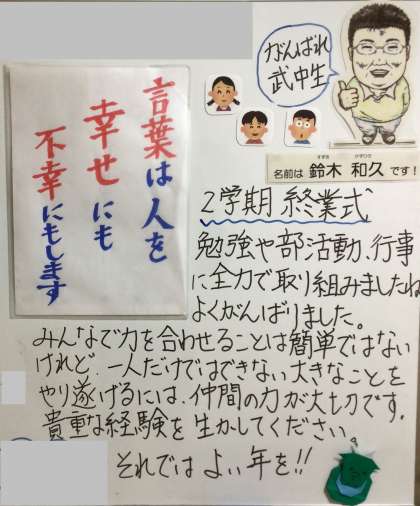 言葉は人を
幸せにも
不幸にもします
がんばれ
武中生
すずき かずひさ
名前は 鈴木 和久 です！
2学期 終業式
勉強や部活動、行事
に全力で取り組みましたね
よくがんばりました。
みんなで力を合わせることは簡単ではない
けれど、一人だけではできない大きなことを
やり遂げるには、仲間の力が大切です。
貴重な経験を生かしてください。
それでは よい年を!!